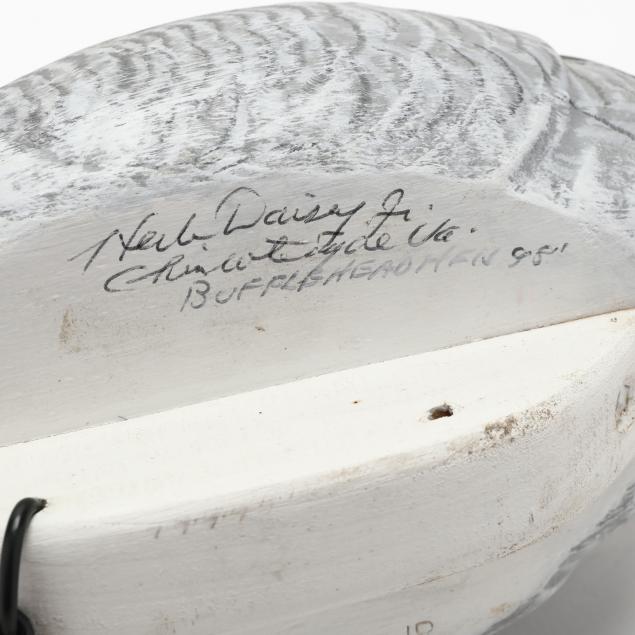 Herb Daisey Jr.
Chincoteague Va.
BUFFLEHEAD HEN 98'